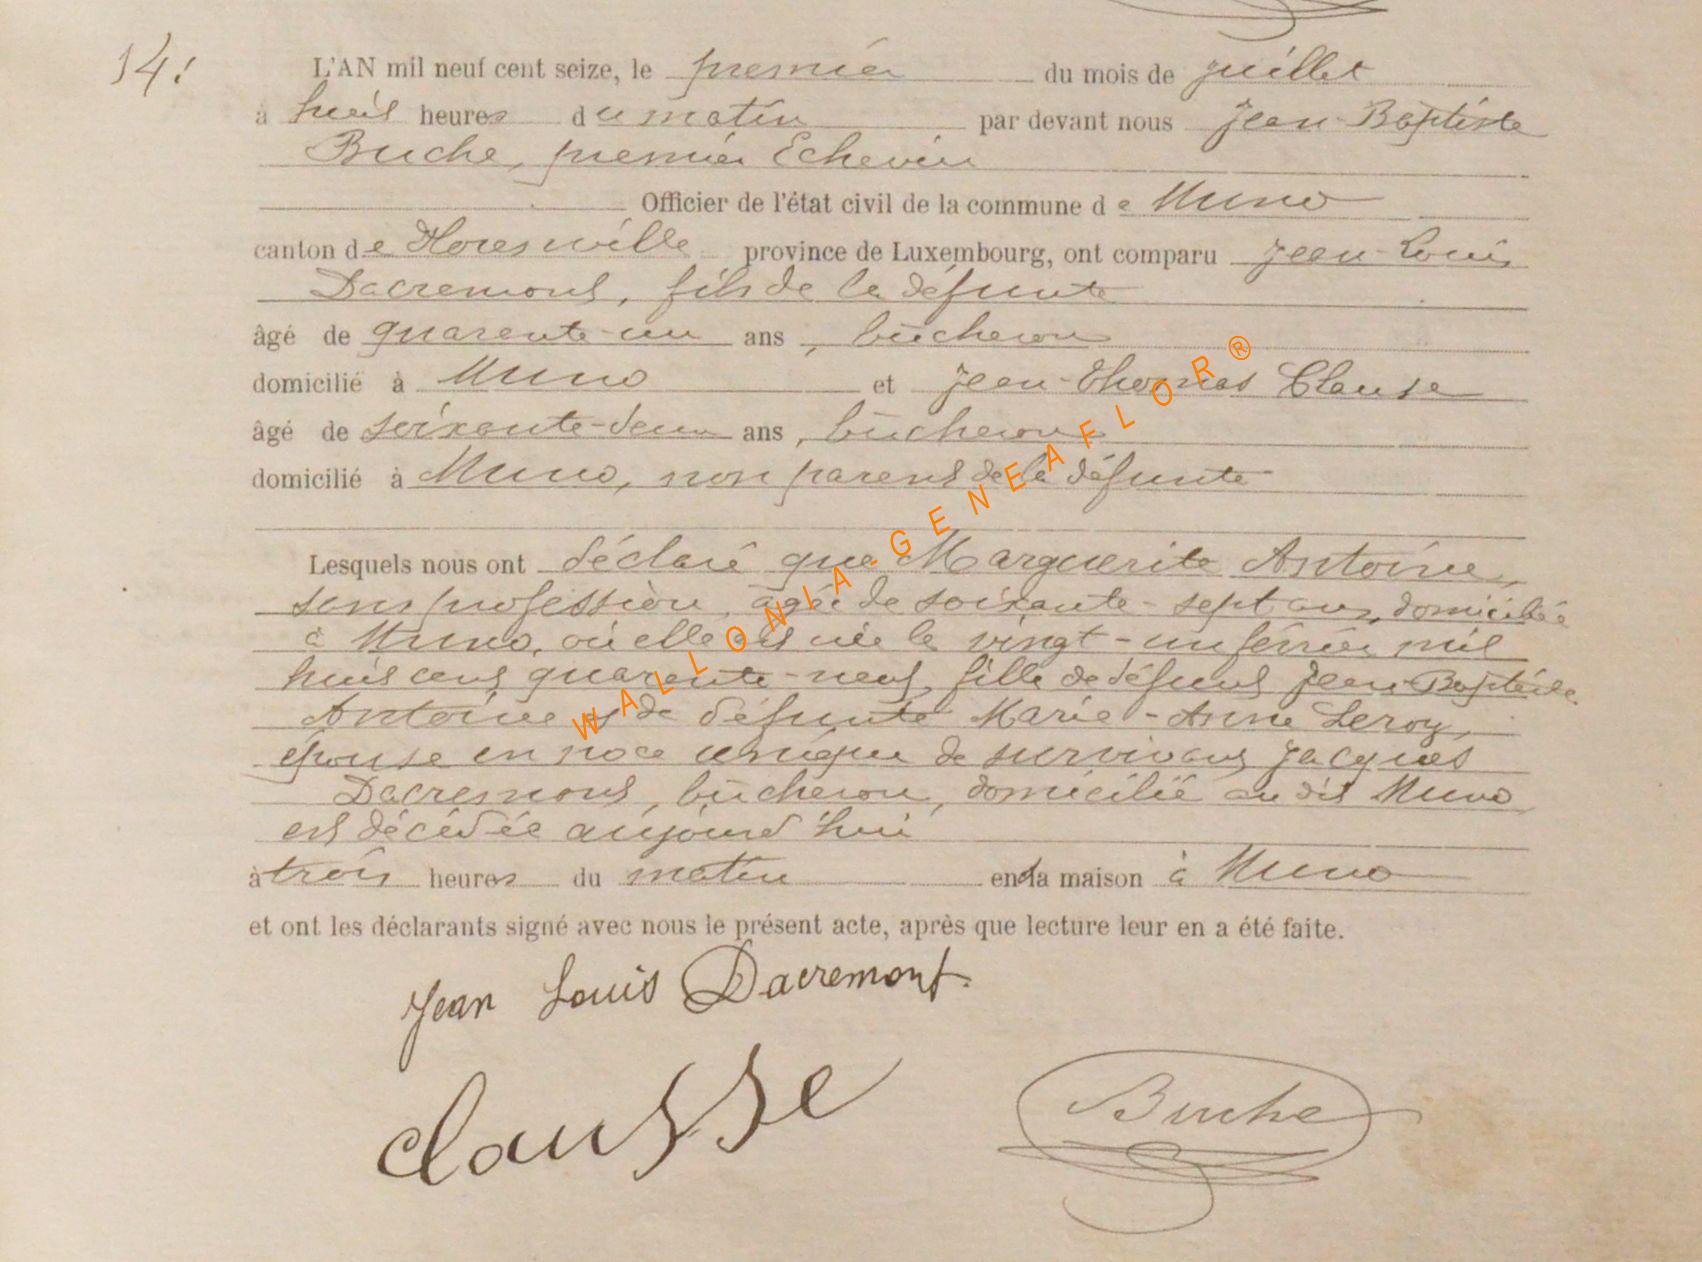 14.
L'AN mil neuf cent seize, le premier du mois de juillet
à huit heures du matin par devant nous Jean-Baptiste
Buche, premier Echevin
Officier de l'état civil de la commune de Muno
canton de Florenville province de Luxembourg, ont comparu Jean-Louis
Dacremont, fils de la défunte
âgé de quarante-un ans, bûcheron
domicilié à Muno et Jean-Thomas Clausse
âgé de soixante-deux ans, bûcheron
domicilié à Muno, non parent de la défunte
Lesquels nous ont déclaré que Marguerite Antoine,
sans profession, âgée de soixante-sept ans, domiciliée
à Muno, où elle est née le vingt-un février mil
huit cent quarante-neuf, fille de défunt Jean-Baptiste
Antoine et de défunte Marie-Anne Leroy,
épouse en noce unique de survivant Jacques
Dacremont, bûcheron, domicilié au dit Muno
est décédée aujourd'hui
à trois heures du matin en la maison à Muno
et ont les déclarants signé avec nous le présent acte, après que lecture leur en a été faite.
Jean Louis Dacremont
Clausse
Buche
WALLONIA-GENEAFLOR®